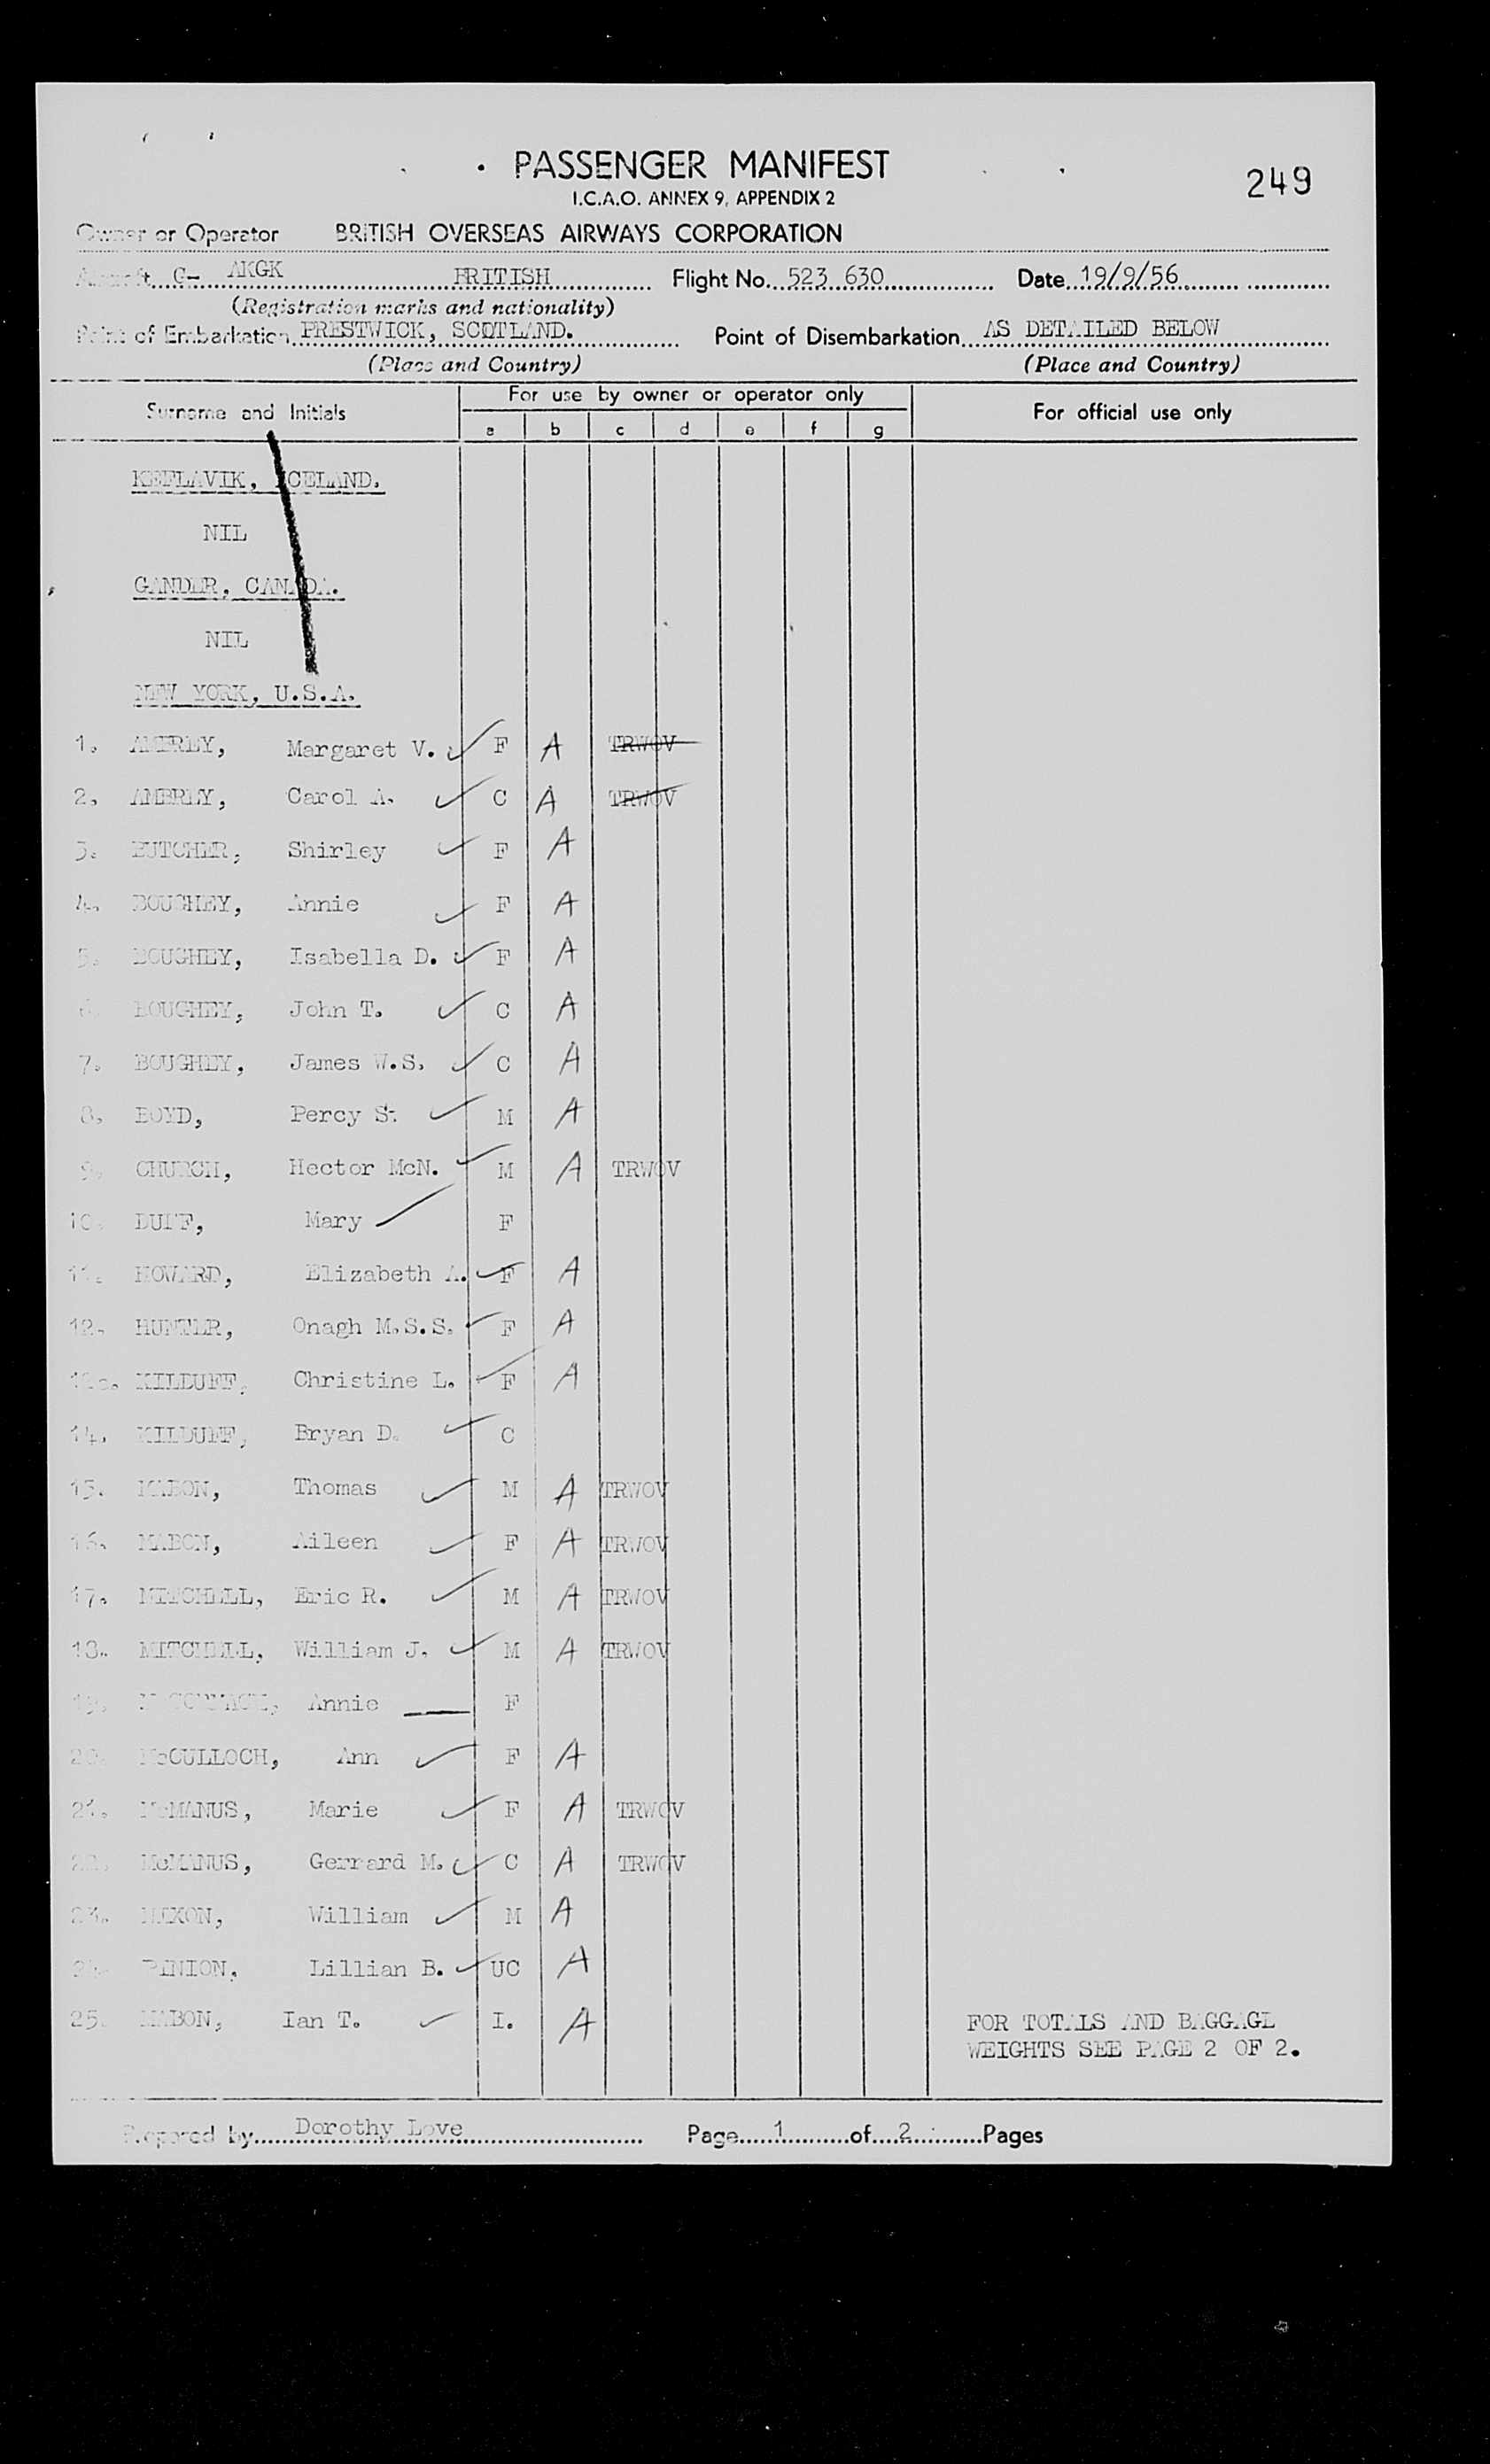 PASSENGER MANIFEST
249
I.C.A.O. ANNEX 9, APPENDIX 2
Owner or Operator BRITISH OVERSEAS AIRWAYS CORPORATION
Aircraft G- AKGK BRITISH Flight No. 523 630 Date 19/9/56
(Registration marks and nationality)
Point of Embarkation PRESTWICK, SCOTLAND. Point of Disembarkation AS DETAILED BELOW
(Place and Country) (Place and Country)
Surname and Initials For use by owner or operator only For official use only
a b c d e f g
KEFLAVIK, ICELAND.
NIL
GANDER, CANADA.
NIL
NEW YORK, U.S.A.
1. AMBREY, Margaret V. F A TRWOV
2. AMBREY, Carol A. C A TRWOV
3. BUTCHER, Shirley F A
4. BOUGHEY, Annie F A
5. BOUGHEY, Isabella D. F A
6. BOUGHEY, John T. C A
7. BOUGHEY, James W.S. C A
8. BOYD, Percy S. M A
9. CHURCH, Hector McN. M A TRWOV
10. DUFF, Mary F
11. HOWARD, Elizabeth A. F A
12. HUNTER, Onagh M.S.S. F A
13. KILDUFF, Christine L. F A
14. KILDUFF, Bryan D. C
15. MABON, Thomas M A TRWOV
16. MABON, Aileen F A TRWOV
17. MITCHELL, Eric R. M A TRWOV
18. MITCHELL, William J. M A TRWOV
19. Annie F
20. McCULLOCH, Ann F A
21. McMANUS, Marie F A TRWOV
22. McMANUS, Gerrard M. C A TRWOV
23. William M A
24. Lillian B. UC A
25. MABON, Ian T. I. A
FOR TOTALS AND BAGGAGE
WEIGHTS SEE PAGE 2 OF 2.
Prepared by Dorothy Love Page 1 of 2 Pages